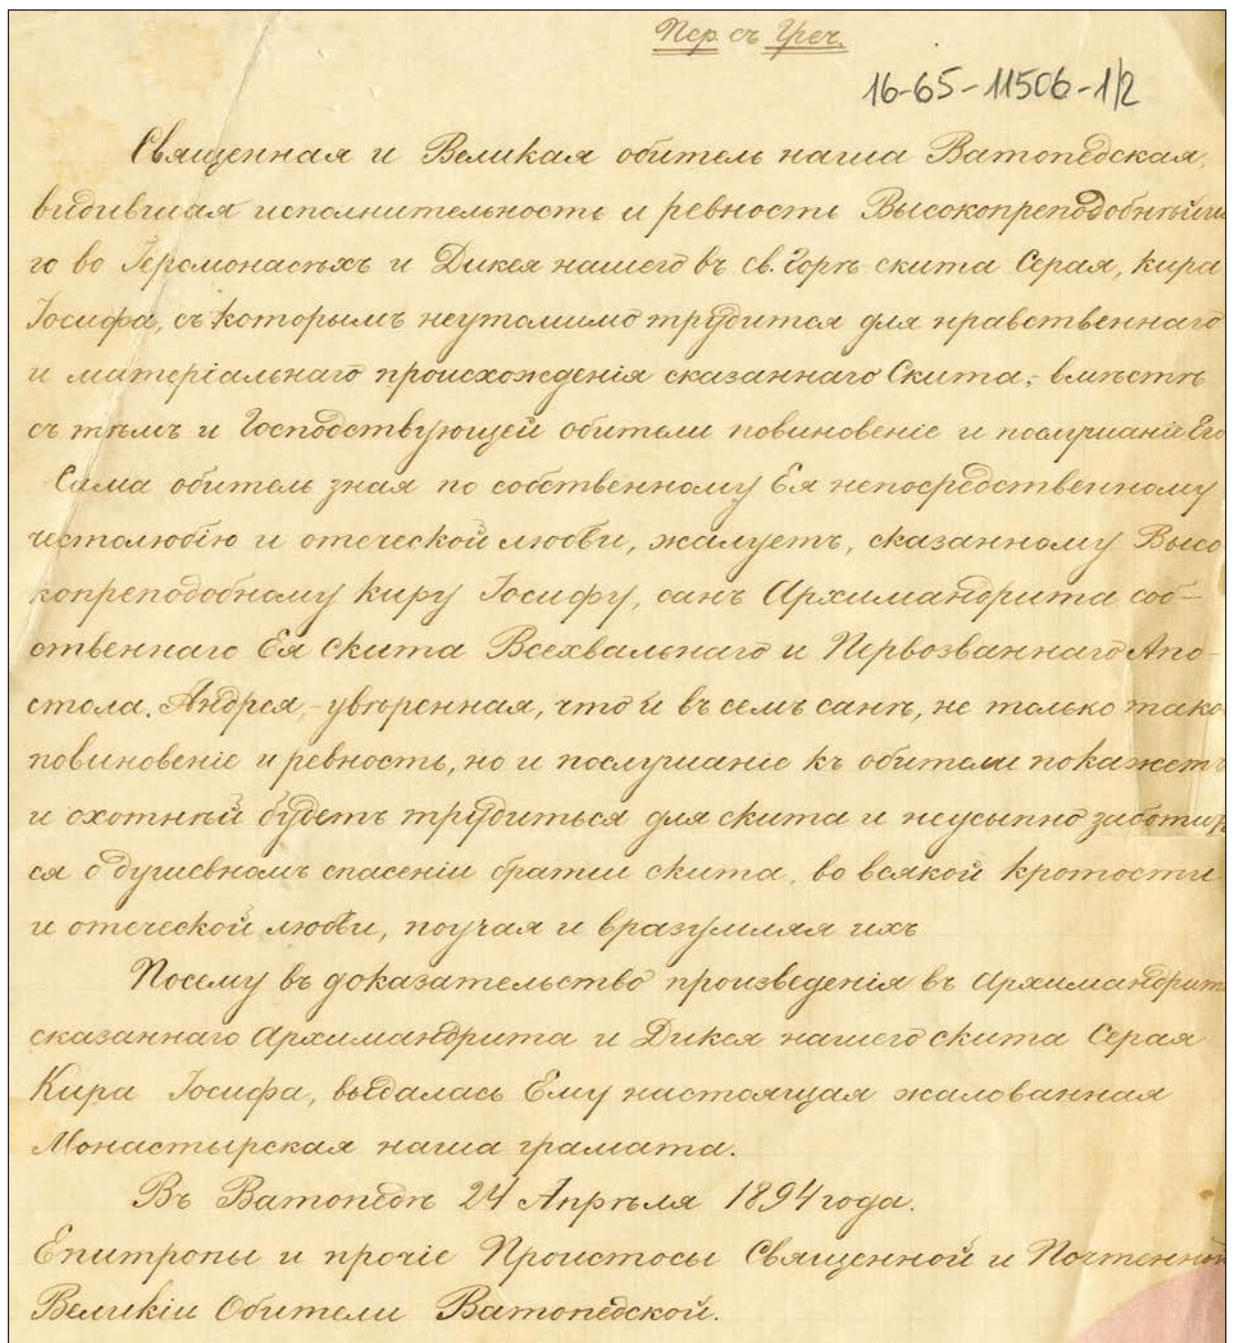 Пер. съ Греч.
16-65-11506-1/2
Священная и Великая обитель наша Ватопедская,
видившая исполнительность и ревность Высокопреподобнѣйша
го во Іеромонасѣхъ и Дикея нашего въ св. Горѣ скита Серая, кира
Іосифа, съ которымъ неутомимо трудится для нравственнаго
и матеріальнаго происхожденія сказаннаго Скита, - вмѣстѣ
съ тѣмъ и Господствующей обители повиновеніе и послушаніе Его
Сама обитель зная по собственному Ея непосредственному
честолюбію и отеческой любви, жалуетъ, сказанному Высо
копреподобному киру Іосифу, санъ Архимандрита соб-
ственнаго Ея скита Всехвальнаго и Первозваннаго Апо-
стола. Андрея, - увѣренная, что и въ семъ санѣ, не только тако
повиновеніе и ревность, но и послушаніе къ обители покажетъ
и охотнѣй будетъ трудиться для скита и неусыпно заботит
ся о душевномъ спасеніи братіи скита, во всякой кротости
и отеческой любви, поучая и вразумляя ихъ
Посему въ доказательство произведенія въ Архимандрит
сказаннаго Архимандрита и Дикея нашего скита Серая
Кира Іосифа, выдалась Ему настоящая жалованная
Монастырская наша грамата.
Въ Ватопедѣ 24 Апрѣля 1894 года.
Епитропы и прочіе Проистосы Священной и Почтенной
Великіи Обители Ватопедской.